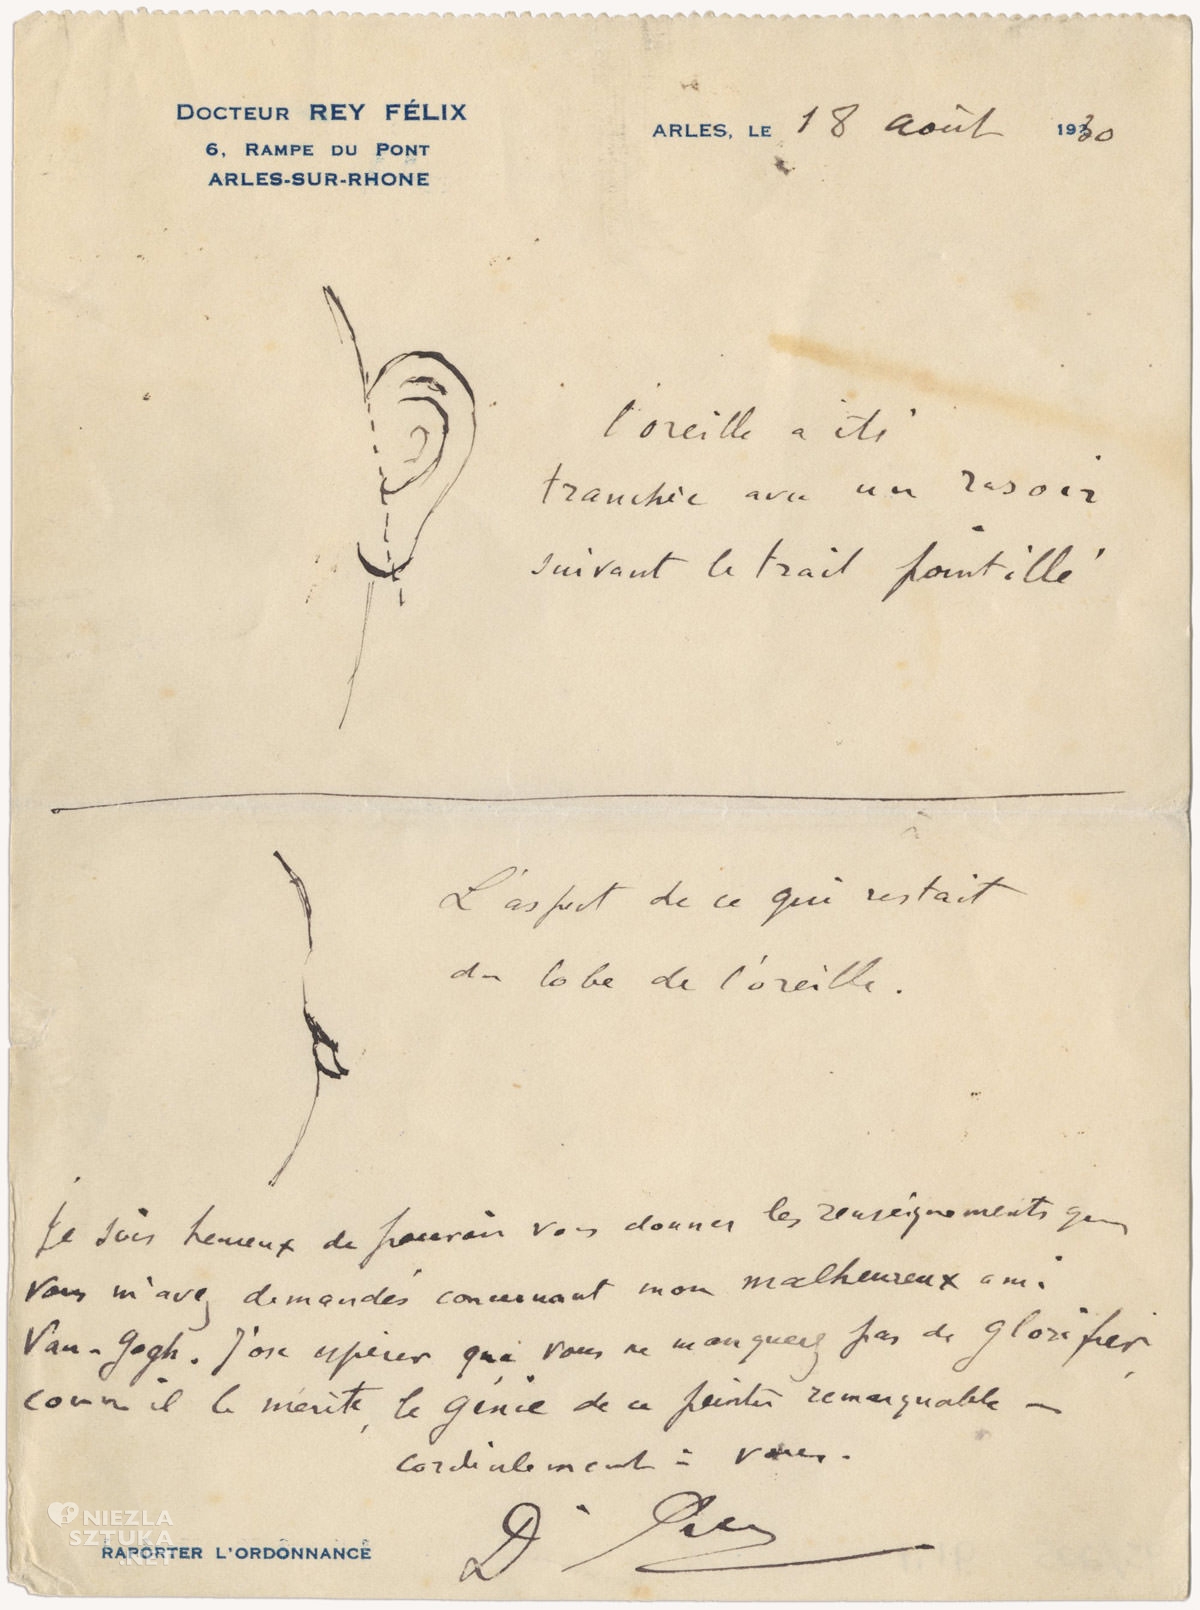 DOCTEUR REY FÉLIX
6, RAMPE DU PONT
ARLES-SUR-RHONE
ARLES, LE 18 août 1930
l'oreille a été
tranchée avec un rasoir
suivant le trait pointillé
L'aspect de ce qui restait
du lobe de l'oreille.
Je suis heureux de pouvoir vous donner les renseignements que
vous m'avez demandés concernant mon malheureux ami
Van-Gogh. J'ose espérer que vous ne manquerez pas de glorifier
comme il le mérite, le génie de ce peintre remarquable —
cordialement à vous.
Dr Rey
RAPORTER L'ORDONNANCE
NIEZLA
SZTUKA
.NET